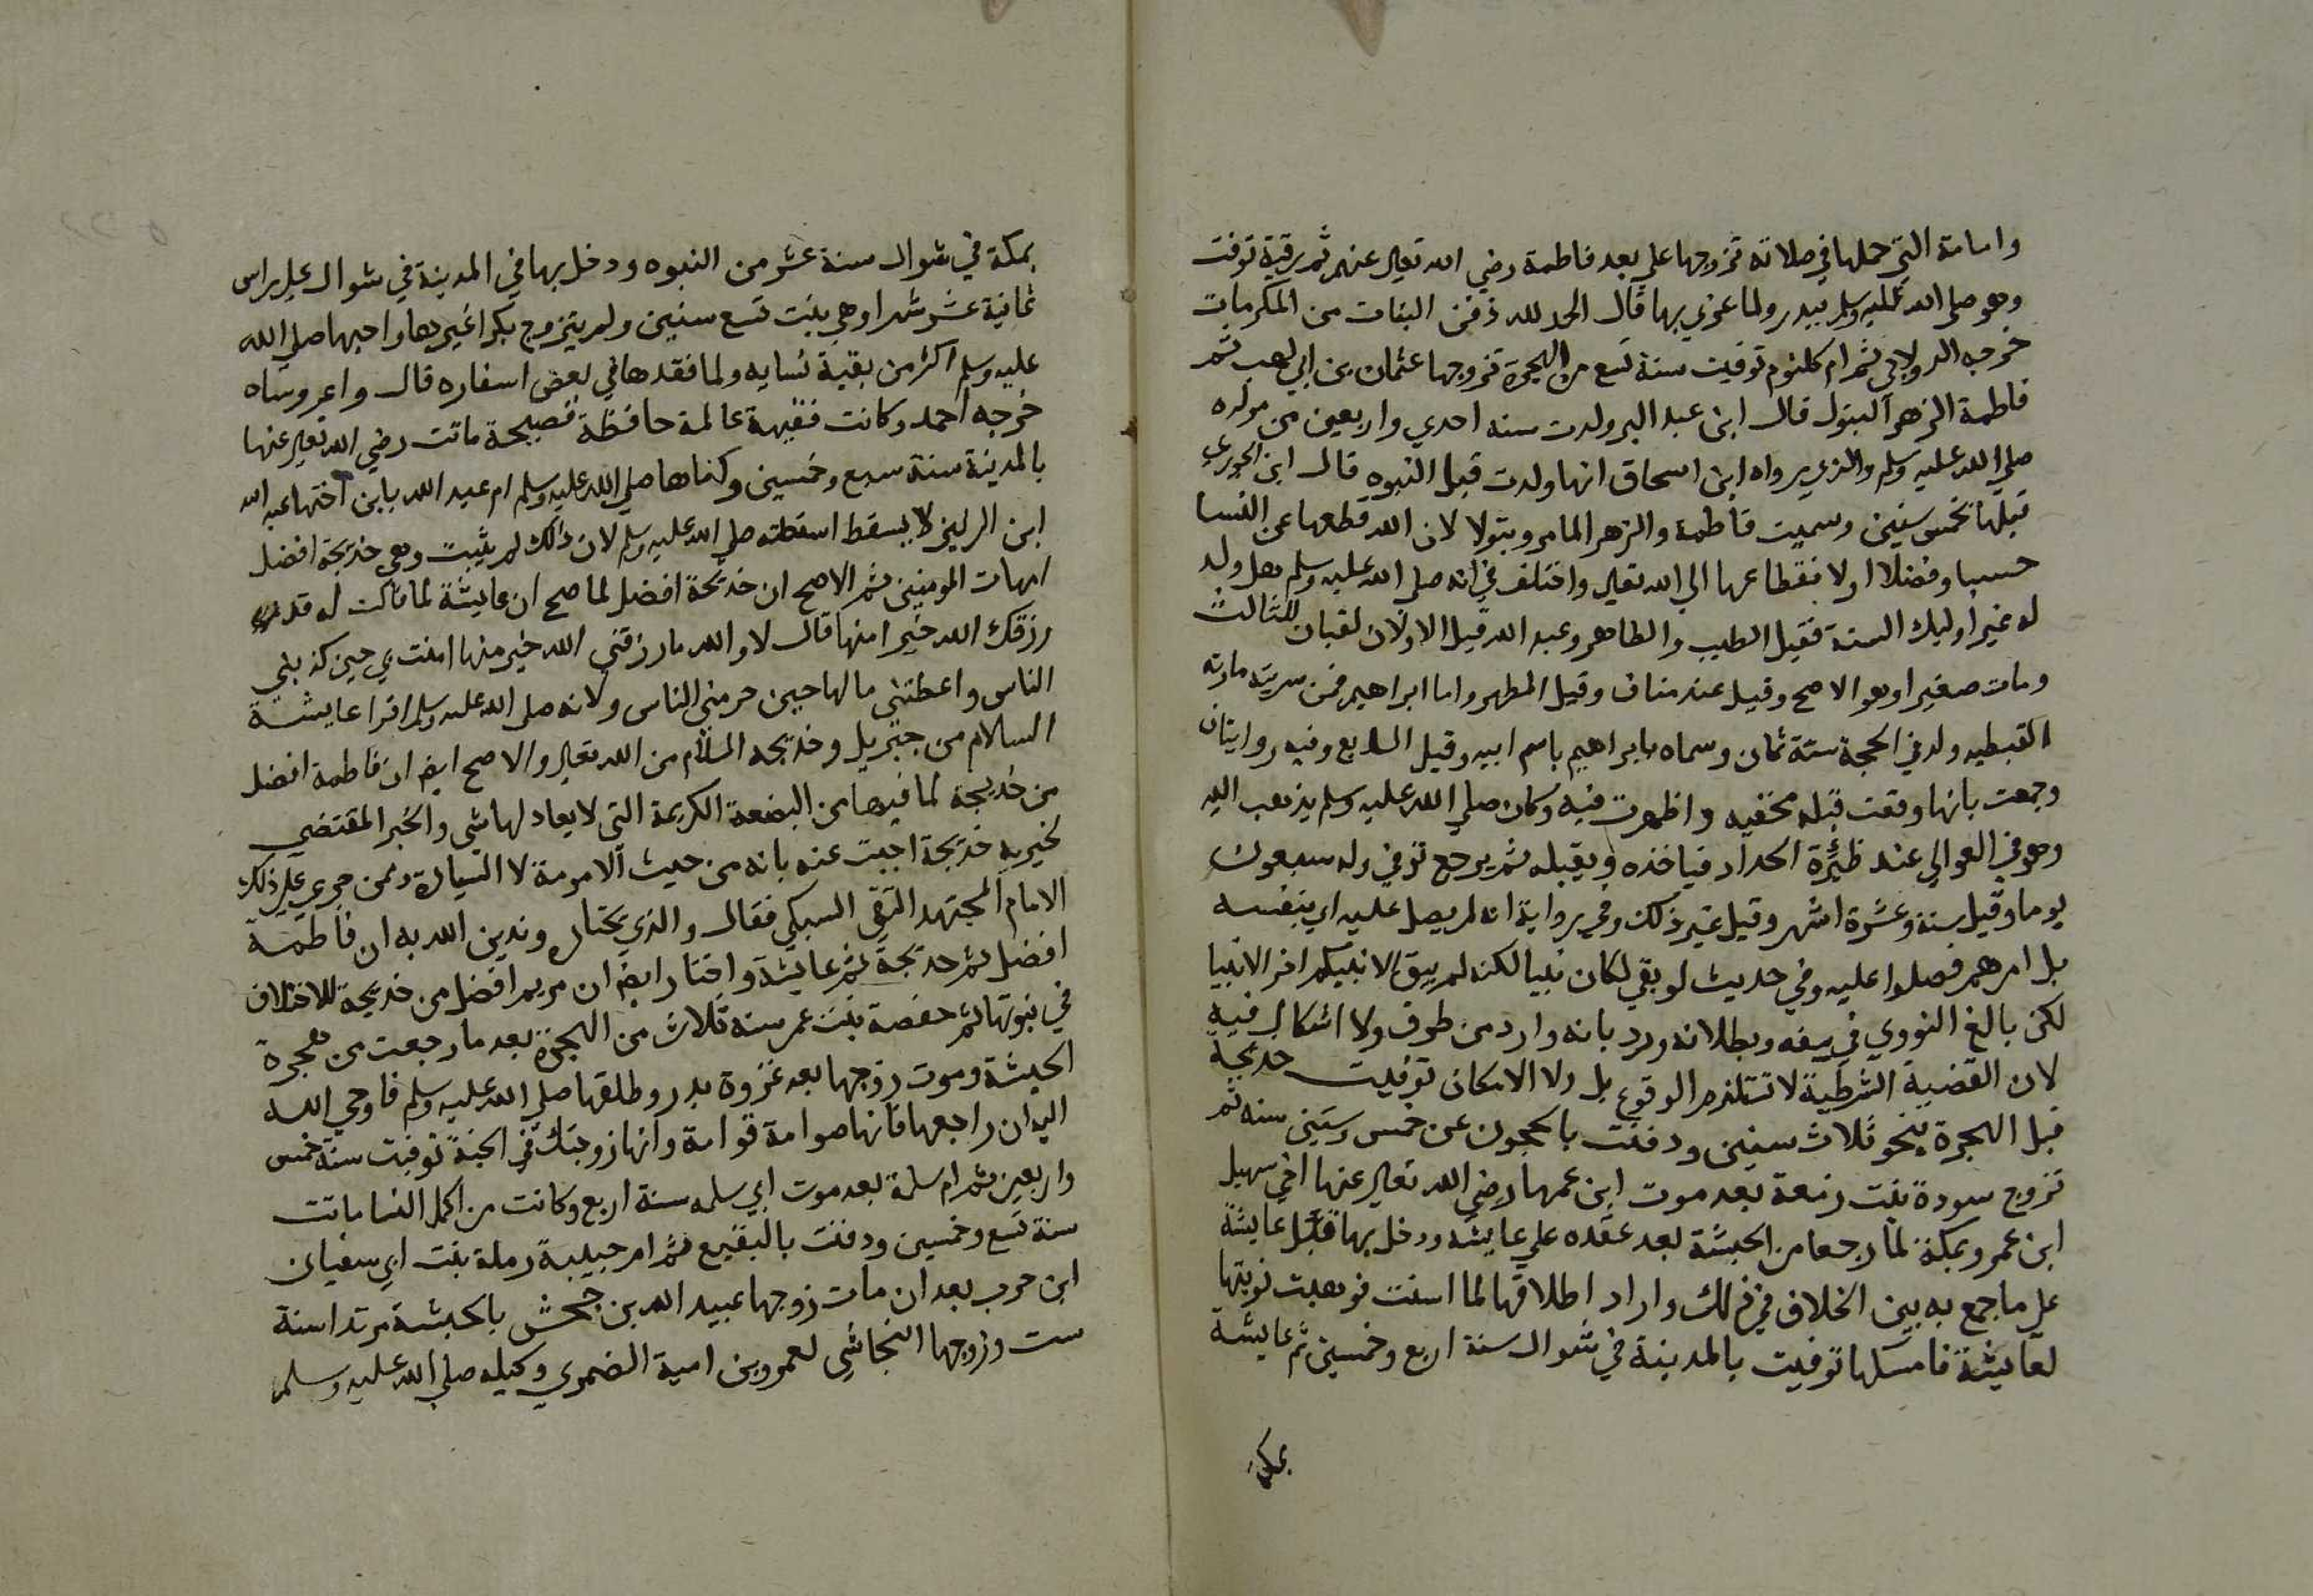 وامامة التي حملها في صلاته تزوجها علي بعد فاطمة رضي الله تعالى عنهم ثم رقية توفت
وهو صلى الله عليه وسلم ببدر ولما عزي بها قال الحمد لله دفن البنات من المكرمات
خرجه الدولابي ثم ام كلثوم توفيت سنة تسع من الهجرة تزوجها عثمان بن ابي لهب ثم
فاطمة الزهرآ البتول قال ابن عبد البر ولدت سنه احدي واربعين من مولده
صلي الله عليه وسلم والذي رواه ابن اسحاق انها ولدت قبل النبوه قال ابن الجوزي
قبلها بخمس سنين وسميت فاطمة والزهرا لما مر وبتولا لان الله قطعها عن النسا
حسبا وفضلا اولا نقطاعها الي الله تعالى واختلف في انه صلى الله عليه وسلم هل ولد
له غير اوليك الستة فقيل الطيب والطاهر وعبد الله قيل الاولان لقبان للثالث
ومات صغيرا وهو الاصح وقيل عند مناف وقيل المطهر واما ابراهيم فمن سريته ماريه
القبطيه ولد في الحجة سنة ثمان وسماه بابراهيم باسم ابيه وقيل السابع وفيه روايتان
وجمعت بانها وقعت قبله مخفيه واظهرت فيه وكان صلي الله عليه وسلم يذهب اليه
وهو في العوالي عند ظيره الحداد فياخذه ويقبله ثم يرجع توفي وله سبعون
يوما وقيل سنة وعشرة اشهر وقيل غير ذلك وفي رواية انه لم يصل عليه اي بنفسه
بل امرهم فصلوا عليه وفي حديث لو بقي لكان نبيا لكنه لم يبق لان نبيكم اخر الانبيا
لكن بالغ النووي في بطلانه ورد بانه وارد من طرف ولا اشكال فيه
لان القضية الشرطية لا تستلزم الوقوع بل ولا الامكان توفيت خديجة
قبل الهجرة بنحو ثلاث سنين ودفنت بالحجون عن خمس وستين سنه ثم
تزوج سودة بنت زمعة بعد موت ابن عمها رضي الله تعالى عنها اخي سهيل
ابن عمرو بمكة لما رجعا من الحبشة بعد عقده علي عايشه ودخل بها قبل عايشة
على ما جمع به بين الخلاف في ذلك واراد اطلاقها لما اسنت فوهبت نوبتها
لعايشة فامسكها توفيت بالمدينة في شوال سنة اربع وخمسين ثم عايشة
بمكة
بمكة في شوال سنة عشر من النبوه ودخل بها في المدينة في شوال على راس
ثمانية عشر شهرا وهي بنت تسع سنين ولم يتزوج بكرا غيرها واحبها صلي الله
عليه وسلم اكثر من بقية نسايه ولما فقدها في بعض اسفاره قال واعروساه
خرجه احمد وكانت فقيهة عالمة حافظة فصيحة ماتت رضي الله تعالى عنها
بالمدينة سنة سبع وخمسين وكناها صلي الله عليه وسلم ام عبد الله بابن اختها عبد الله
ابن الزبير لا بسقط اسقطته صلى الله عليه وسلم لان ذلك لم يثبت وهي خديجة افضل
امهات المومنين ثم الاصح ان خديجة افضل لما صح ان عايشة لما قالت له قد
رزقك الله خيرا منها قال لا والله ما رزقني الله خير منها امنت بي حين كذبني
الناس واعطتني مالها حين حرمني الناس ولانه صلى الله عليه وسلم اقرا عايشة
السلام من جبريل وخديجه السلام من الله تعالى والاصح ايضا ان فاطمة افضل
من خديجة لما فيها من البضعة الكريمة التي لا يعادلها شي والخبر المقتضي
لخيريه خديجة اجيب عنه بانه من حيث الامومة لا السيادة وممن جري على ذلك
الامام المجتهد التقي السبكي فقال والذي نختاره وندين الله به ان فاطمة
افضل ثم خديجة ثم عايشة واختار ايضا ان مريم افضل من خديجة للاختلاف
في نبوتها ثم حفصة بنت عمر سنه ثلاث من الهجرة بعد ما رجعت من هجرة
الحبشة وموت زوجها بعد غزوة بدر وطلقها صلي الله عليه وسلم فاوحي الله
اليه ان راجعها فانها صوامة قوامة وانها زوجتك في الجنة توفيت سنة خمس
واربعين ثم ام سلمة بعد موت ابي سلمه سنة اربع وكانت من اكمل النسا ماتت
سنة تسع وخمسين ودفنت بالبقيع ثم ام حبيبة رملة بنت ابي سفيان
ابن حرب بعد ان مات زوجها عبيد الله بن جحش بالحبشة مرتدا سنة
ست وزوجها النجاشي لعمرو بن امية الضمري وكيله صلي الله عليه وسلم